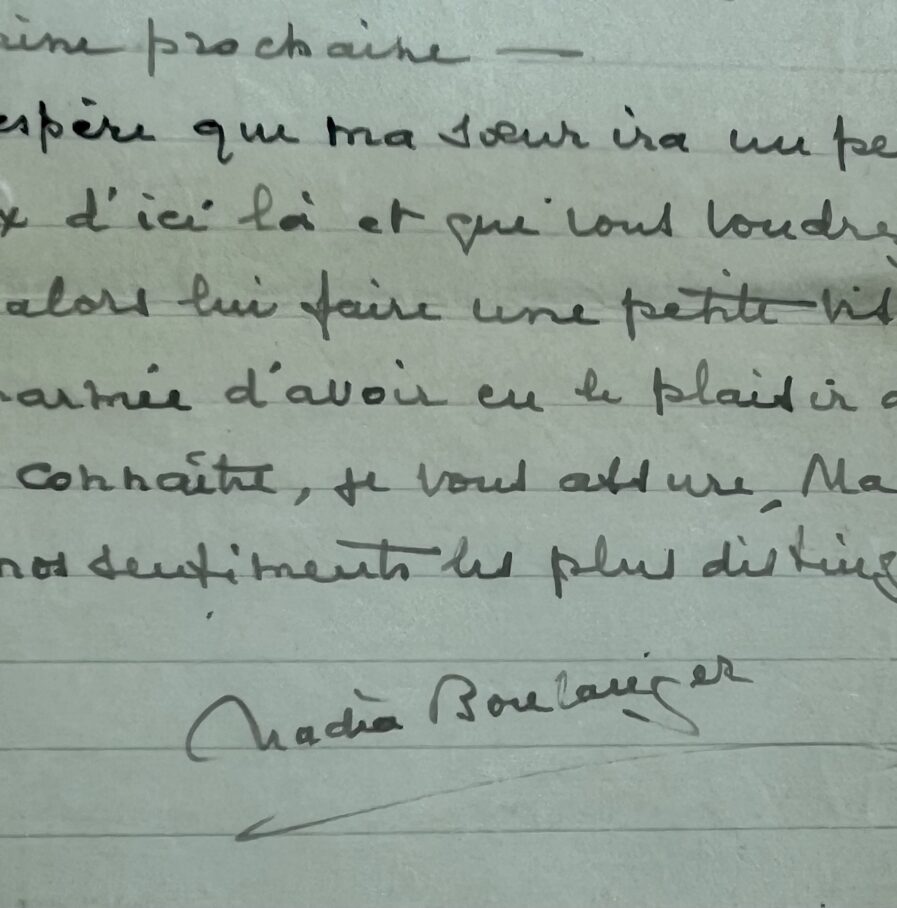 ine prochaine —
espère que ma sœur ira un pe
x d'ici là et que vous voudre
alors lui faire une petite vis
armée d'avoir eu le plaisir d
connaître, je vous assure, Ma
nos sentiments les plus disting
Nadia Boulanger